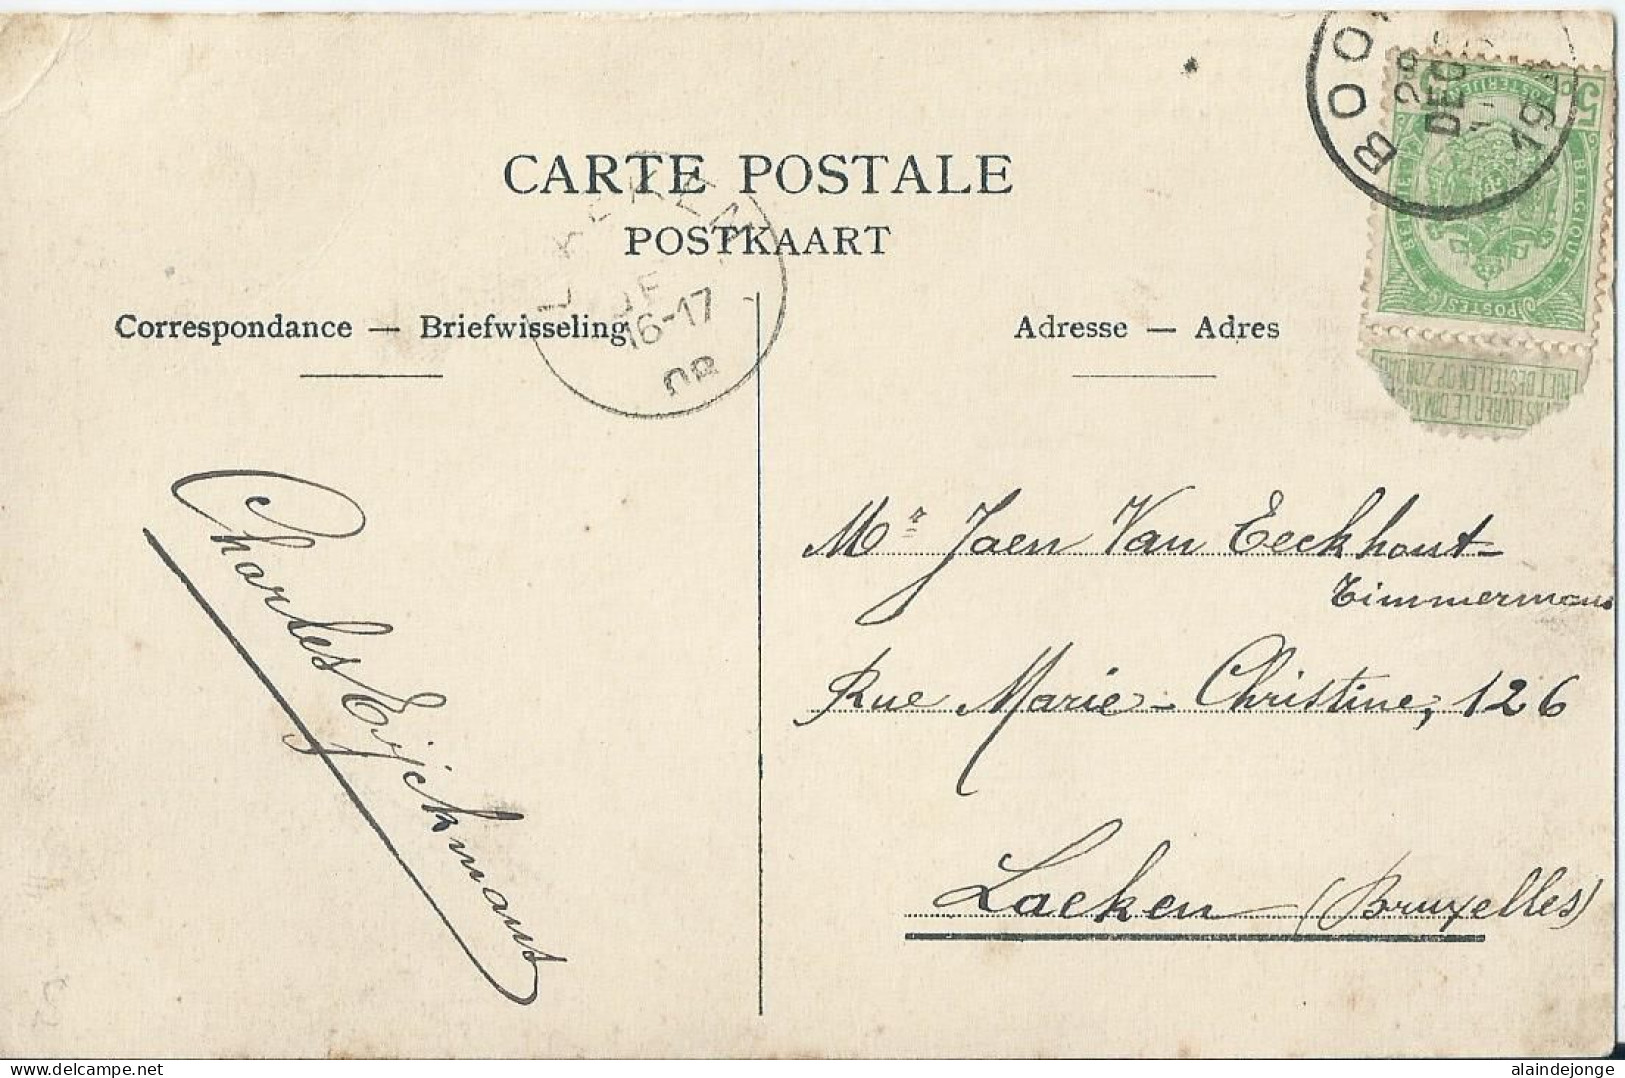 CARTE POSTALE
POSTKAART
Correspondance — Briefwisseling
Adresse — Adres
BOOM
28
DEC
19
LAEKEN
16-17
08
5
BELGIQUE
POSTES
NIET BESTELLEN OP ZONDAG
LIVRER LE
Charles Eyckmans
Mr Jaen Van Eeckhout-
Timmermans
Rue Marie-Christine, 126
Laeken (Bruxelles)
alaindejonge